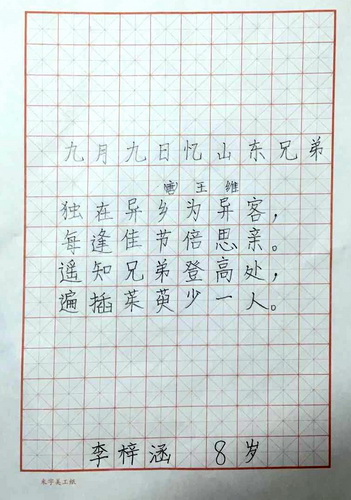 九月九日忆山东兄弟
唐 王维
独在异乡为异客，
每逢佳节倍思亲。
遥知兄弟登高处，
遍插茱萸少一人。
李梓涵 8岁
米字美工纸